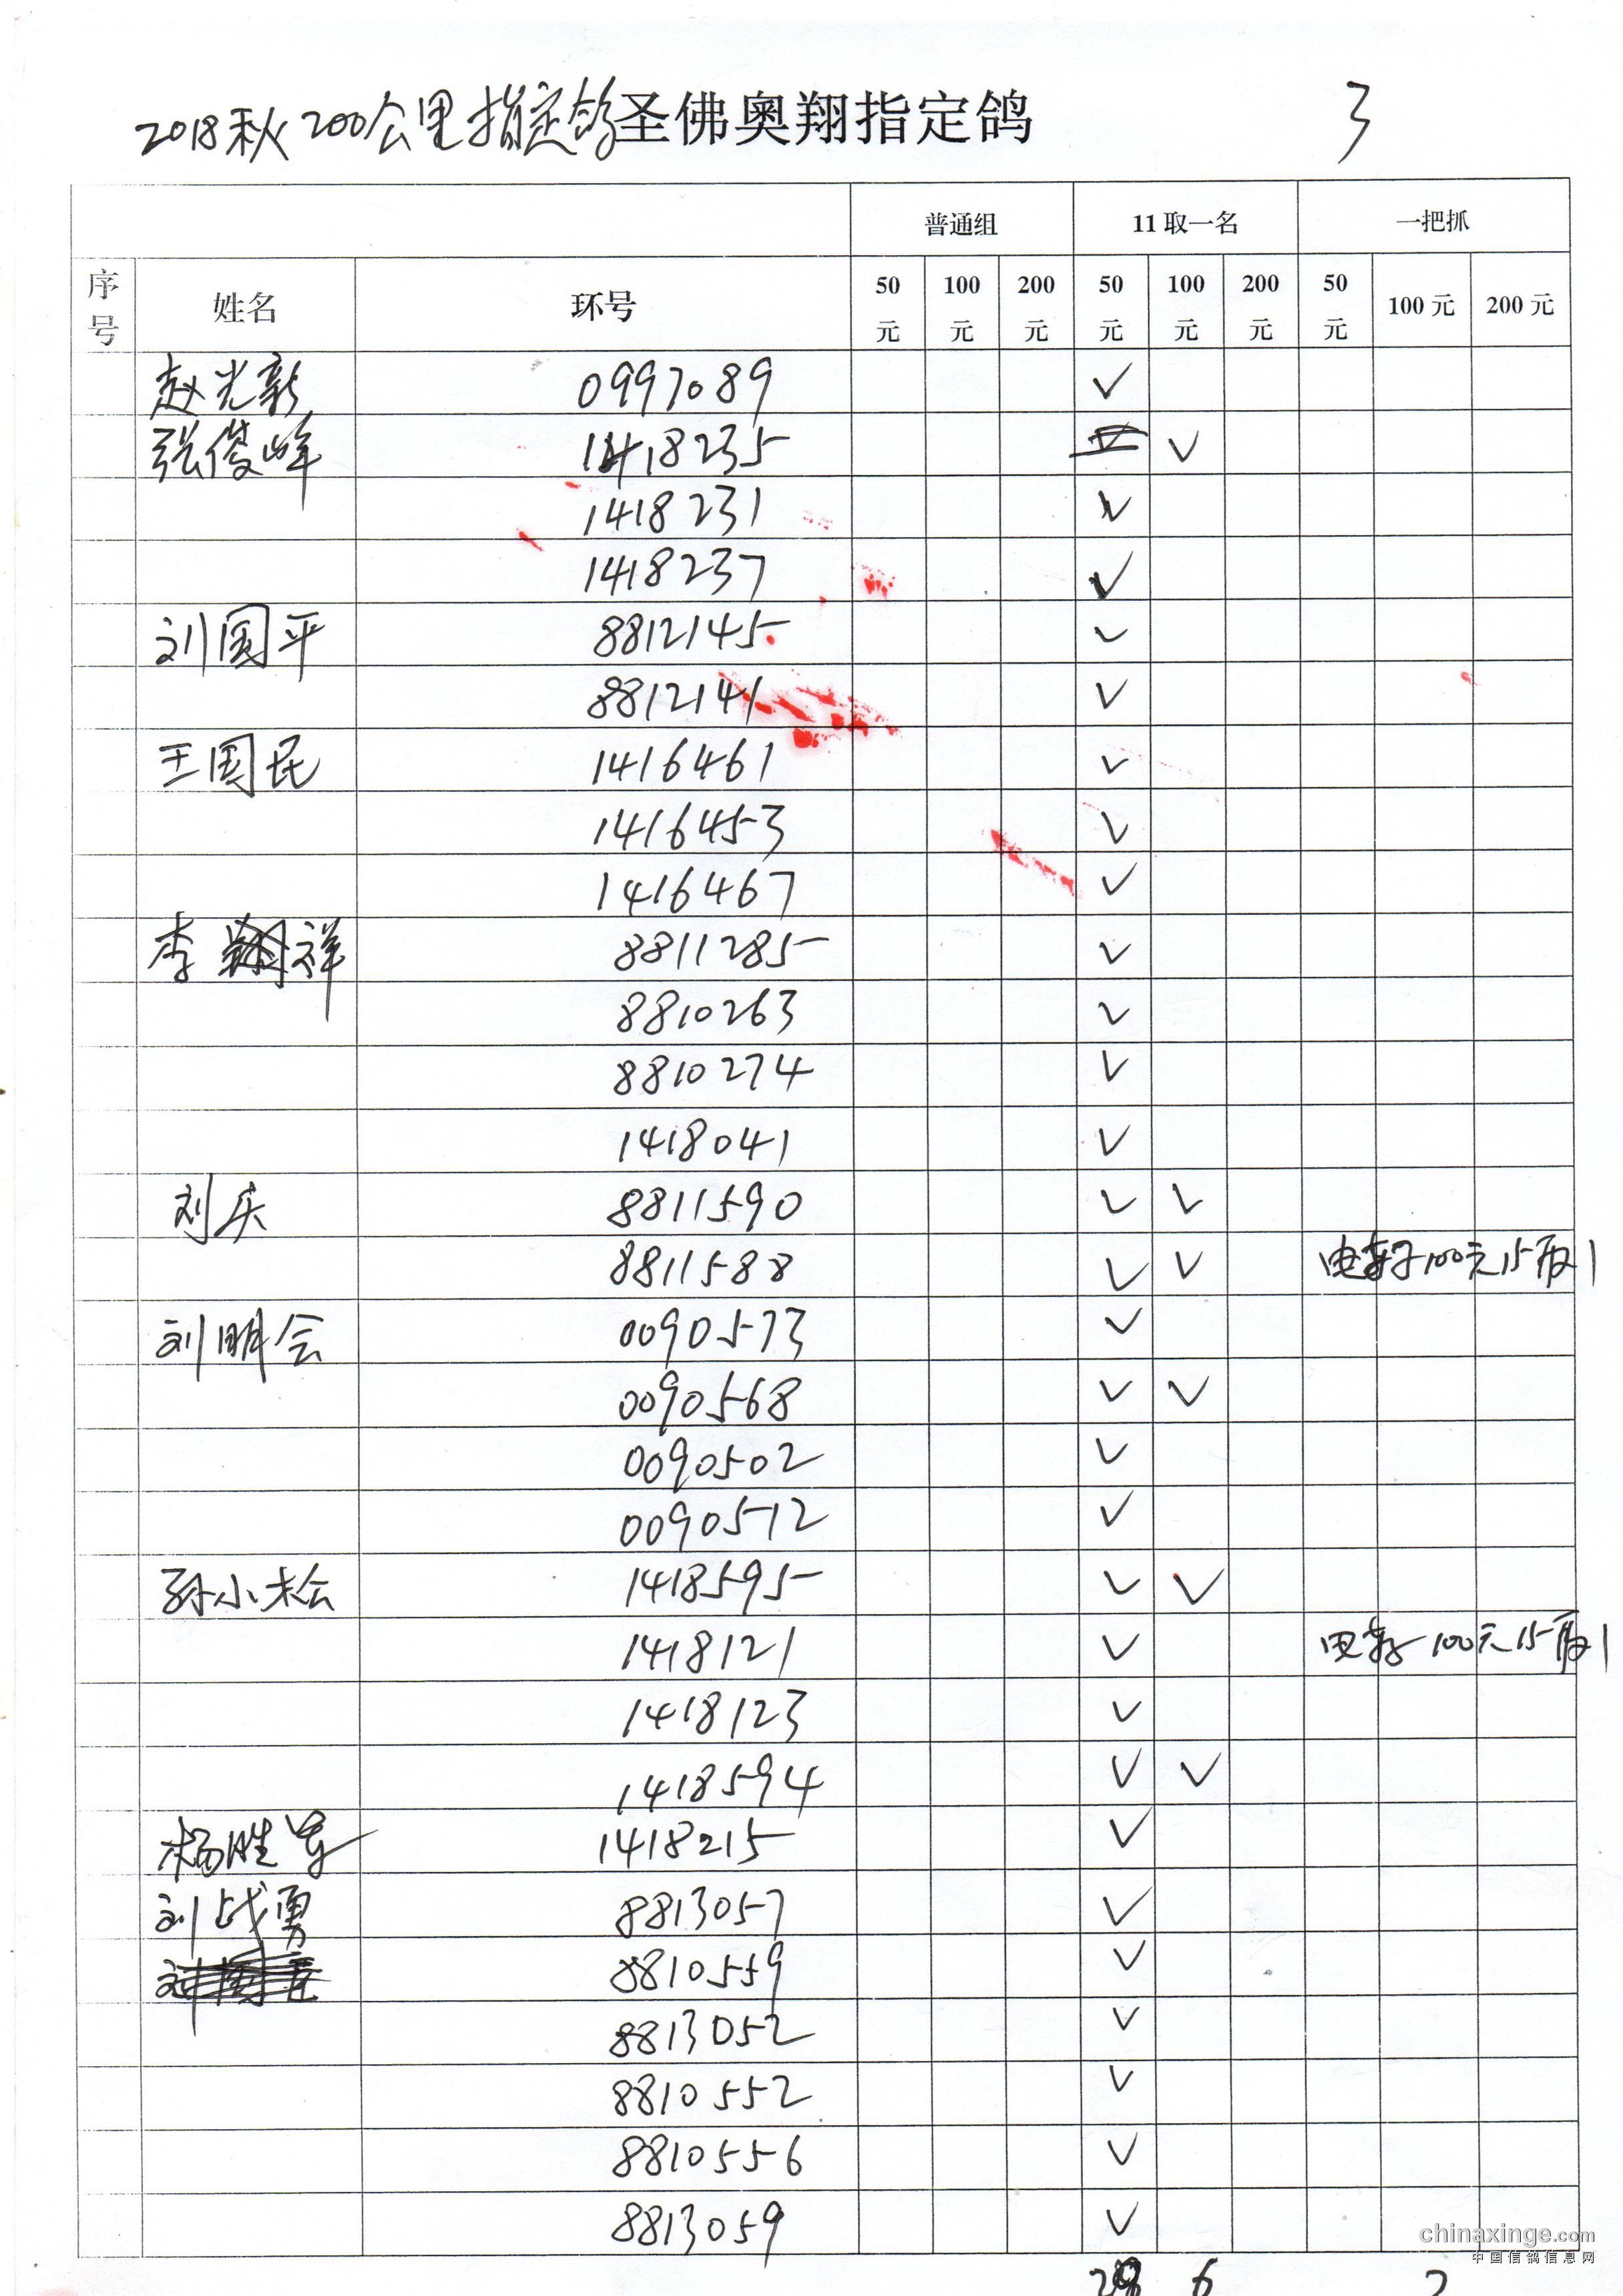 2018秋200公里指定鸽圣佛奥翔指定鸽 3
普通组 11取一名 一把抓
序号 姓名 环号 50元 100元 200元 50元 100元 200元 50元 100元 200元
赵光新 0997089 ✓
张俊峰 1418235 ✓
1418231 ✓
1418237 ✓
刘国平 8812145 ✓
8812141 ✓
王国民 1416461 ✓
1416453 ✓
1416467 ✓
李祥 8811285 ✓
8810263 ✓
8810274 ✓
1418041 ✓
刘庆 8811590 ✓ ✓
8811588 ✓ ✓ 100元15取1
刘明会 0090573 ✓
0090568 ✓ ✓
0090502 ✓
0090512 ✓
孙小松 1418595 ✓ ✓
1418121 ✓ 100元15取1
1418123 ✓
1418594 ✓ ✓
杨胜军 1418215 ✓
刘战勇 8813057 ✓
8810559 ✓
8813052 ✓
8810552 ✓
8810556 ✓
8813059 ✓
6 2
chinaxinge.com
中国信鸽信息网